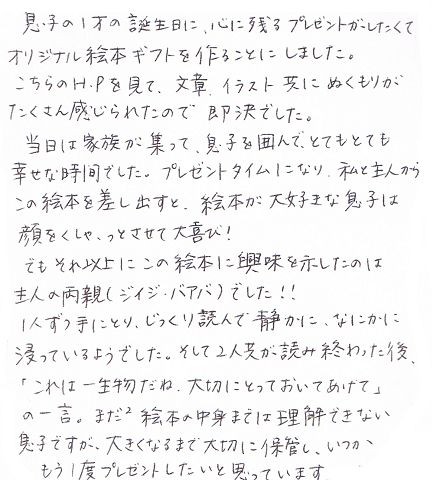 息子の1才の誕生日に、心に残るプレゼントがしたくて
オリジナル絵本ギフトを作ることにしました。
こちらのH.Pを見て、文章、イラスト共にぬくもりが
たくさん感じられたので即決でした。
当日は家族が集って、息子を囲んで、とてもとても
幸せな時間でした。プレゼントタイムになり、私と主人から
この絵本を差し出すと、絵本が大好きな息子は
顔をくしゃっとさせて大喜び!
でもそれ以上にこの絵本に興味を示したのは
主人の両親(ジイジ・バアバ)でした!!
1人ずつ手にとり、じっくり読んで静かに、なにかに
浸っているようでした。そして2人共が読み終わった後、
「これは一生物だね、大切にとっておいてあげて」
の一言。まだ2絵本の中身までは理解できない
息子ですが、大きくなるまで大切に保管し、いつか
もう1度プレゼントしたいと思っています